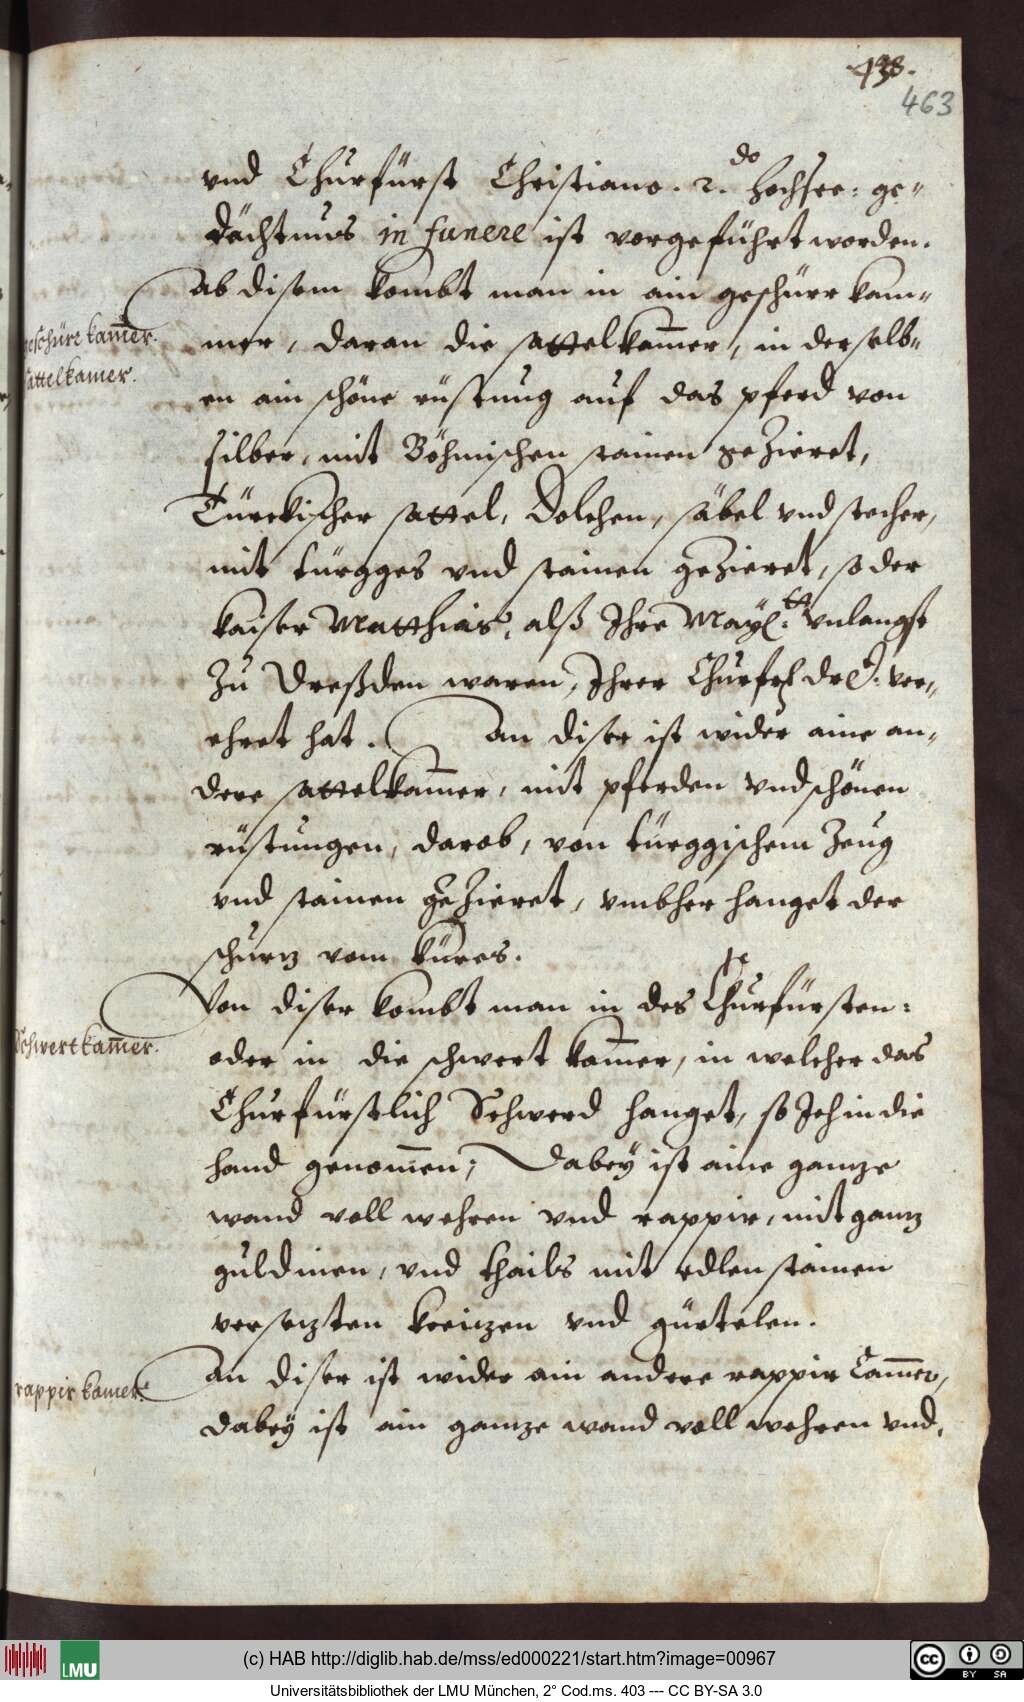 438.
463
vnd Churfürst Christiano. 2.do hochsee: ge„
dächtnus in funere ist vorgeführt worden.
ab disem kombt man in ain geschürr kam„
geschürr kam̅er.
mer, daran die sattelkam̅er, in derselb„
sattelkamer.
en ain schöne rüstung auf das pferd von
silber, mit Böhmischen stainen gezieret,
Türckischer sattel, Dolchen, säbel vnd stecher,
mit türgges vnd stainen gezieret, so der
kaiser Matthias, alß Ihre Mayl:tt vnlangst
Zu Dreßden waren, Ihrer Churfrl drl: ver„
ehret hat. An diser ist wider aine an„
dere sattelkam̅er, mit pferden vnd schönen
rüstungen, darob, von türggischem Zeug
vnd stainen gezieret, vmbher hanget der
schurz vom küres.
Von diser kombt man in des Churfürsten:
schwertkam̅er.
oder in die schwert kam̅er, in welcher das
Churfürstlich Schwerd hanget, so Ich in die
hand genom̅en; Dabey ist aine gantze
wand voll wehren vnd rappir, mit gantz
guldinen, vnd thails mit edlen stainen
versezten kreizen vnd gürtelen.
An diser ist wider ain andere rappir Cam̅er,
rappir kamer.
dabey ist ain gantze wand voll wehren vnd.
(c) HAB http://diglib.hab.de/mss/ed000221/start.htm?image=00967
LMU
cc BY SA
Universitätsbibliothek der LMU München, 2° Cod.ms. 403 --- CC BY-SA 3.0